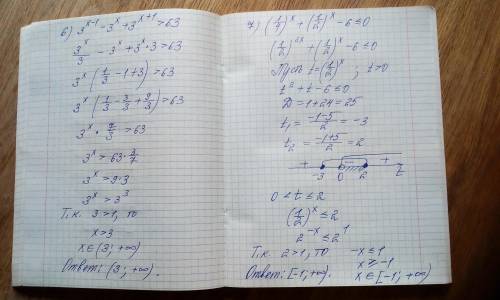 6) 3^(x-1) - 3^x + 3^(x+1) > 63
3^x/3 - 3^x + 3^x · 3 > 63
3^x (1/3 - 1 + 3) > 63
3^x (1/3 - 3/3 + 9/3) > 63
3^x · 7/3 > 63
3^x > 63 · 3/7
3^x > 9 · 3
3^x > 3^3
Т.к. 3 > 1, то
x > 3
x ∈ (3; +∞)
Ответ: (3; +∞).
7) (1/4)^x + (1/2)^x - 6 ≤ 0
(1/2)^(2x) + (1/2)^x - 6 ≤ 0
Пусть t = (1/2)^x ; t > 0
t² + t - 6 ≤ 0
D = 1 + 24 = 25
t₁ = (-1-5)/2 = -3
t₂ = (-1+5)/2 = 2
+ - +
-3 0 2 t
0 < t ≤ 2
(1/2)^x ≤ 2
2^(-x) ≤ 2^1
Т.к. 2 > 1, то -x ≤ 1
x ≥ -1
Ответ: [-1; +∞). x ∈ [-1; +∞)